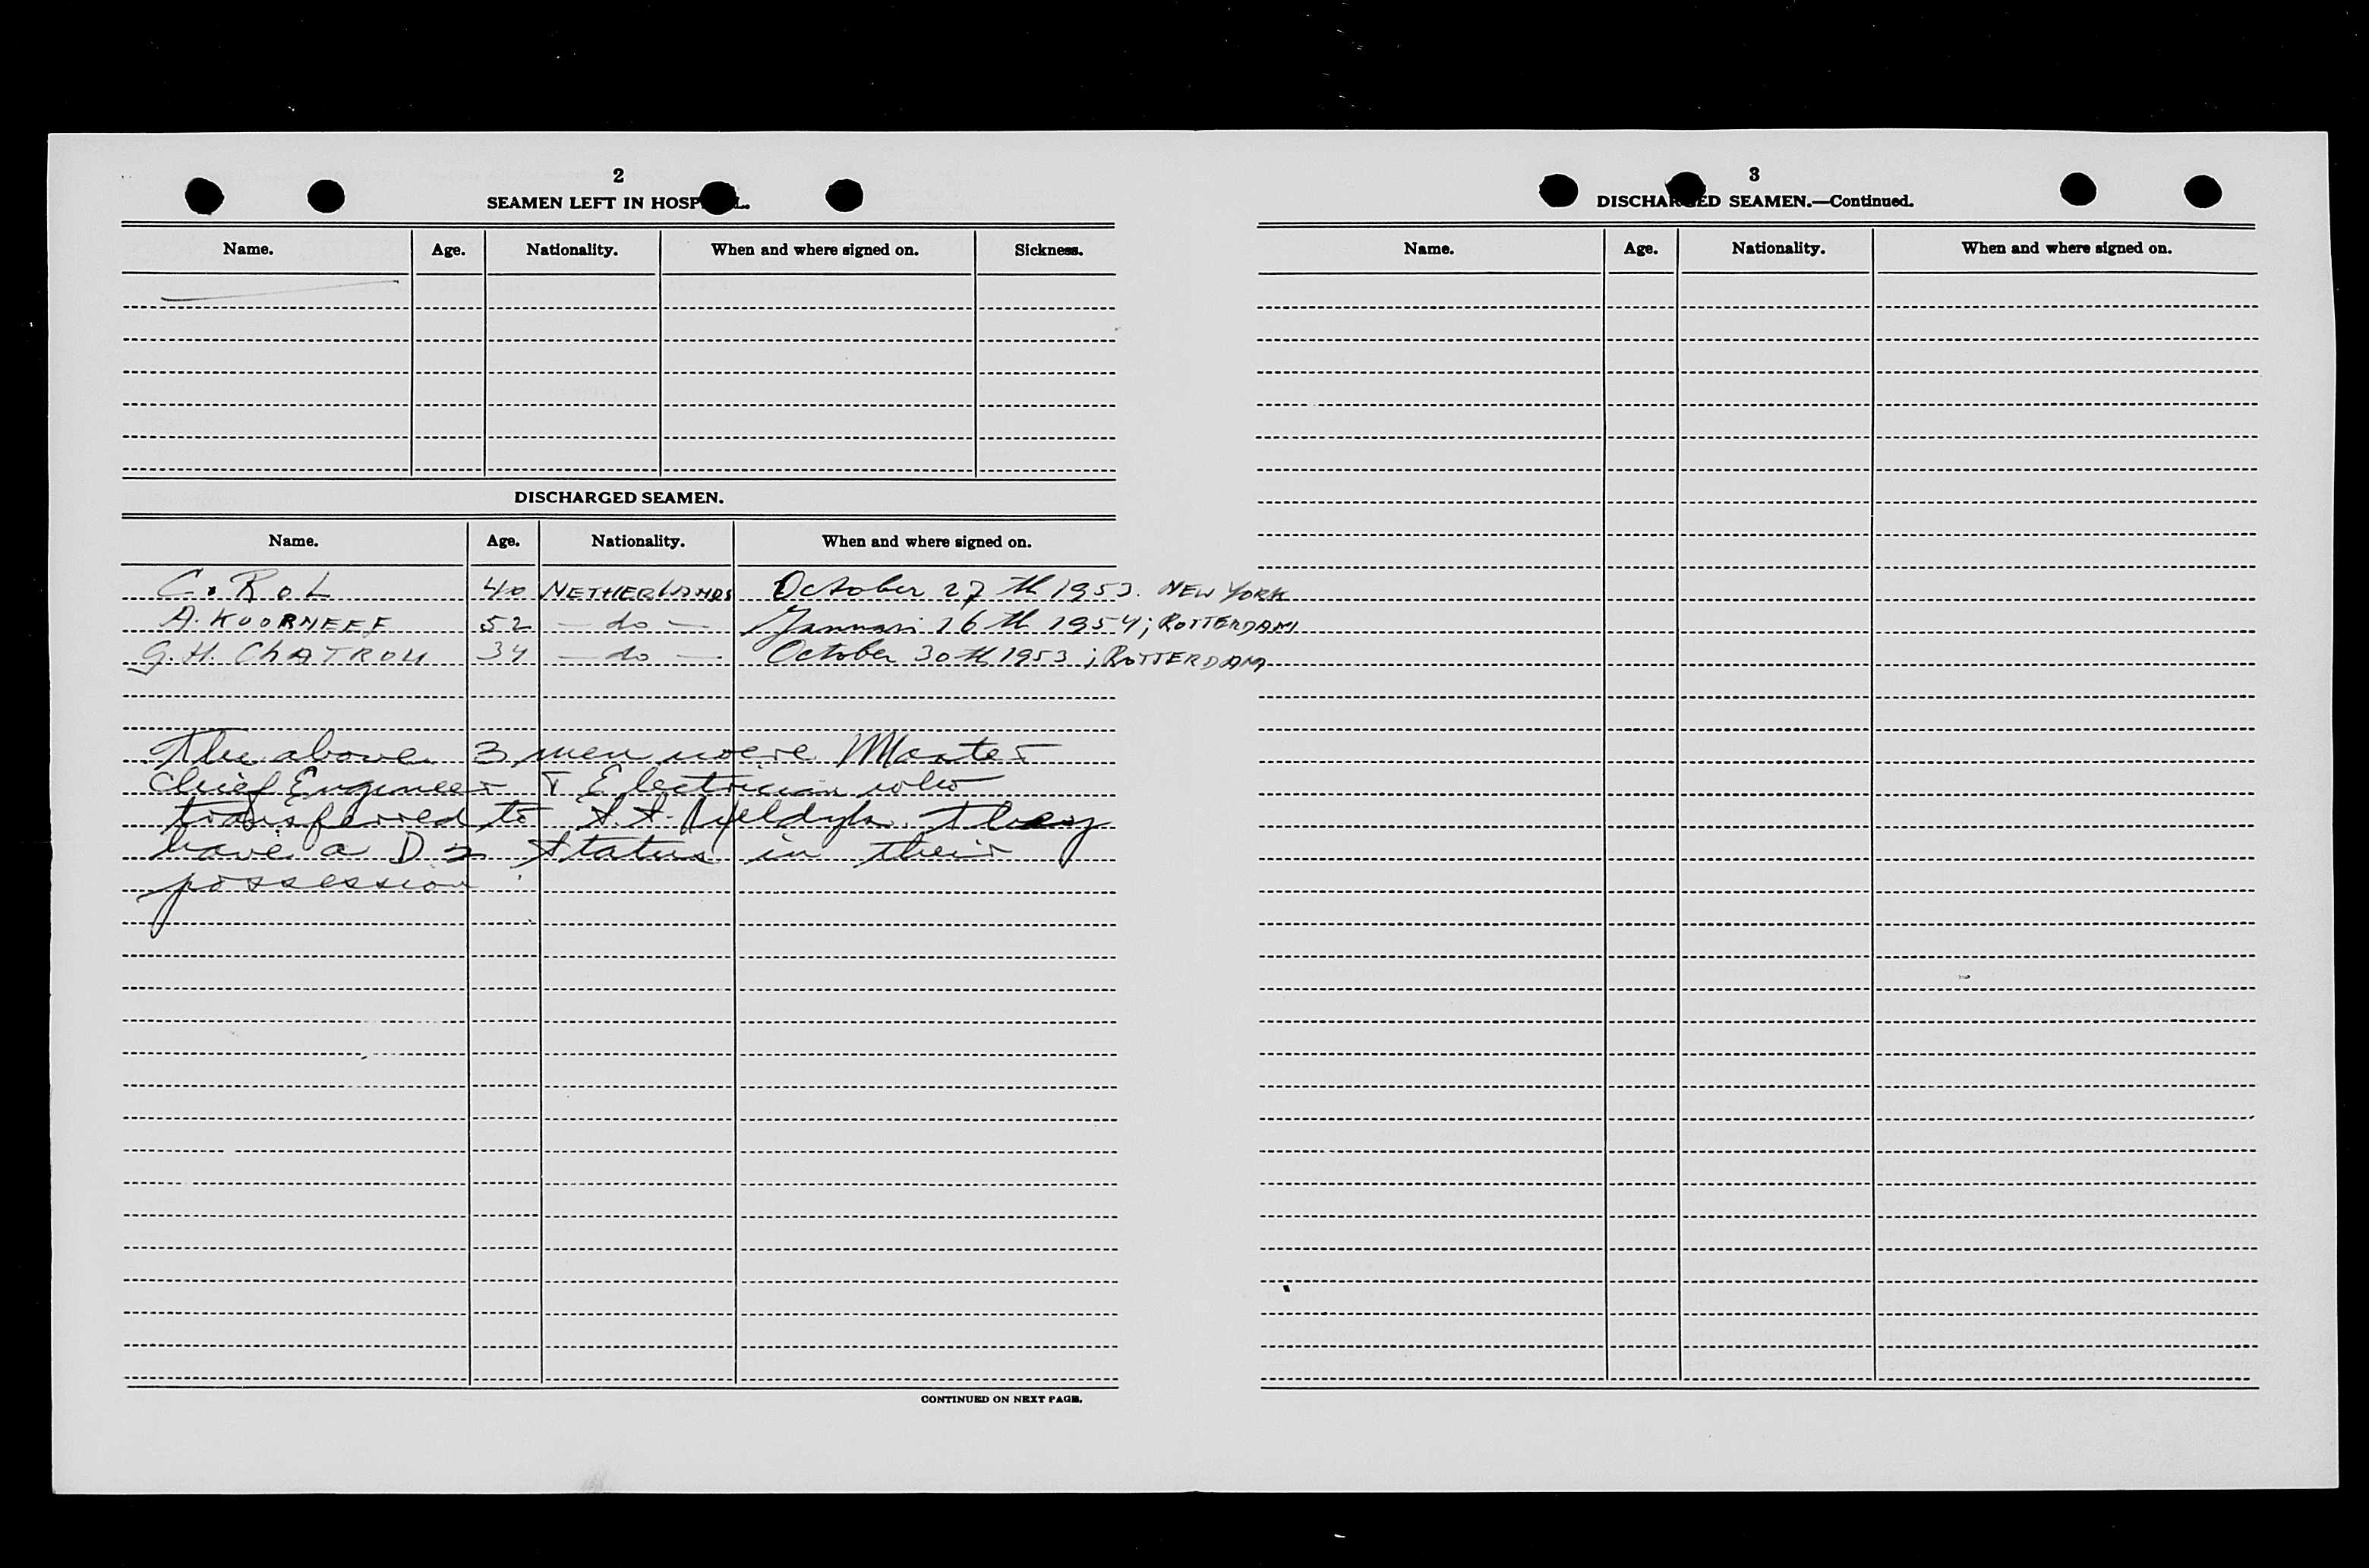 2
SEAMEN LEFT IN HOSP L.
Name. Age. Nationality. When and where signed on. Sickness.
DISCHARGED SEAMEN.
Name. Age. Nationality. When and where signed on.
C. ROL 40 NETHERLANDS October 27th 1953. NEW YORK
A. KOORNEEF 52 — do — Januari 16th 1954; ROTTERDAM
G.H. ChATROU 34 — do — October 30th 1953; ROTTERDAM
The above 3 men were Master
Chief Engineer & Electrician who
transferred to S.S. They
have a D 2 Status in their
possession.
CONTINUED ON NEXT PAGE.
3
DISCHARGED SEAMEN.—Continued.
Name. Age. Nationality. When and where signed on.